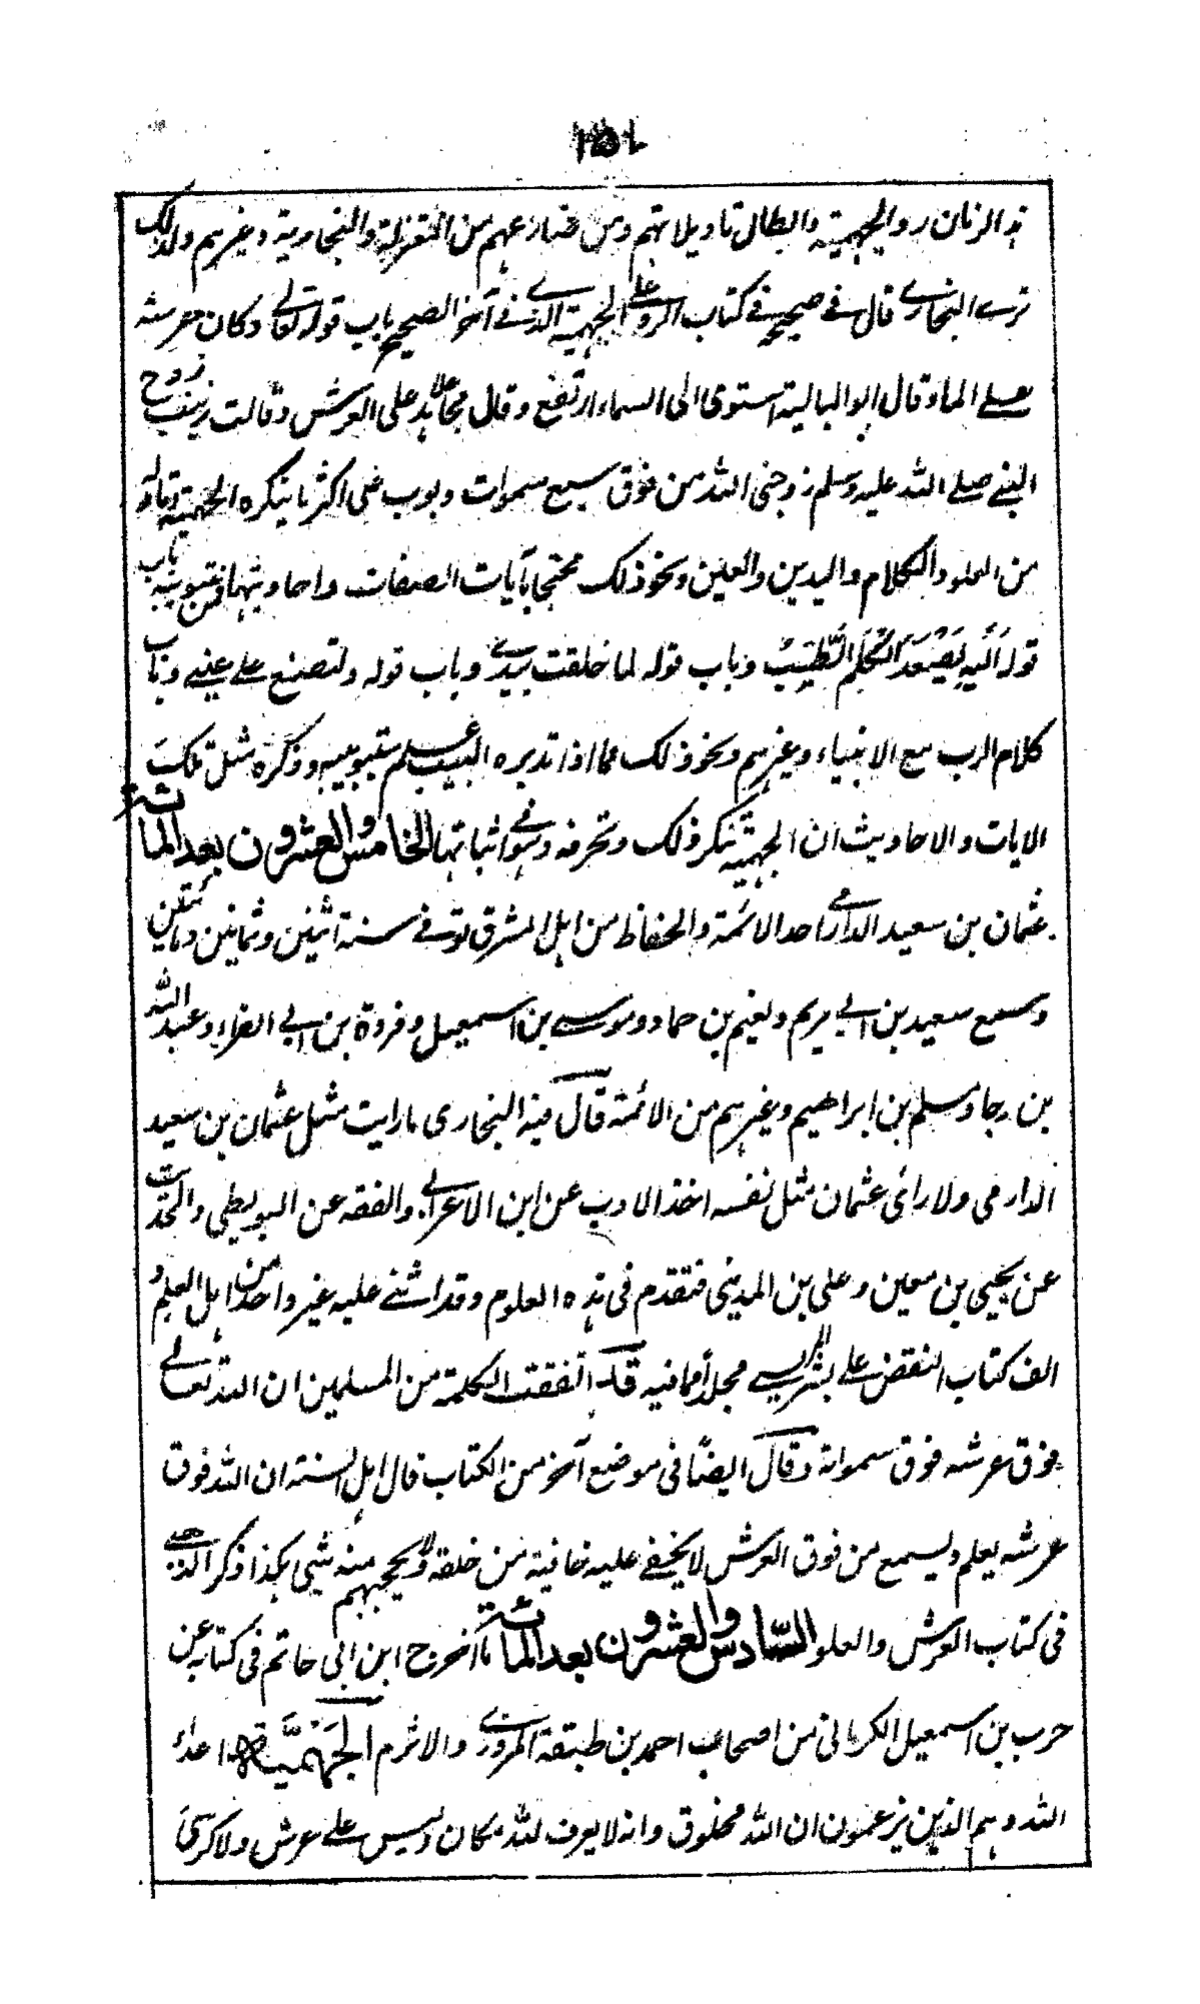 ١٥٧
هذا الزمان رد الجهمية وابطال تاويلاتهم ومن ضارعهم من المعتزلة والنجارية وغيرهم ولذلك
ترے البخارے قال فے صحيحه فے كتاب الرد علی الجهمية الذے فے آخر الصحيح باب قوله تعالی وكان عرشه
علے الماء قال ابو العالية استوی الی السماء ارتفع وقال مجاهد علا علی العرش وقالت زينب زوج
النبے صلے الله عليه وسلم زوجنی الله من فوق سبع سموات وبوب علی اكثر ما ينكره الجهمية
من العلو والكلام واليدين والعين ونحو ذلك محتجا بآيات الصفات واحاديثها فمن تبويبه باب
قوله اليه يصعد الكلم الطيب وباب قوله لما خلقت بيدے وباب قوله ولتصنع علے عينے وباب
كلام الرب مع الانبياء وغيرهم ونحو ذلك مما اذا تدبره اللبيب علم بتبويبه وذكره مثل تلك
الايات والاحاديث ان الجهمية تنكر ذلك وتحرفه وتنوے اثباتها الخامس والعشرون بعد المائة
عثمان بن سعيد الدارمے احد الائمة والحفاظ من اهل المشرق توفے سنة اثنين وثمانين ومائتين
وسمع سعيد بن ابے مريم ونعيم بن حماد وموسے بن اسمعيل وفروة بن ابے المغراء وعبد الله
بن رجاء ومسلم بن ابراهيم وغيرهم من الائمة قال فيه البخاری ما رايت مثل عثمان بن سعيد
الدارمی ولا رائ عثمان مثل نفسه اخذ الادب عن ابن الاعرابے والفقه عن البويطی والحديث
عن يحيی بن معين وعلی بن المدينی فتقدم فی هذه العلوم وقد اثنے عليه غير واحد من اهل العلم و
الف كتاب النقض علے بشر المريسے مجلدا فيه قال اتفقت الكلمة من المسلمين ان الله تعالے
فوق عرشه فوق سمواته وقال ايضًا فی موضع آخر من الكتاب قال اهل السنة ان الله فوق
عرشه يعلم ويسمع من فوق العرش لا يخفے عليه خافية من خلقه ولا يحجبهم منه شیء هكذا ذكر الذهبے
فی كتاب العرش والعلو السادس والعشرون بعد المائة ما اخرج ابن ابی حاتم فی كتابه عن
حرب بن اسمعيل الكرمانی من اصحاب احمد بن طبقة المروزے والاثرم الجهمية اعداء
الله وهم الذين يزعمون ان الله مخلوق وانه لا يعرف لله مكان وليس علے عرش ولا كرسی